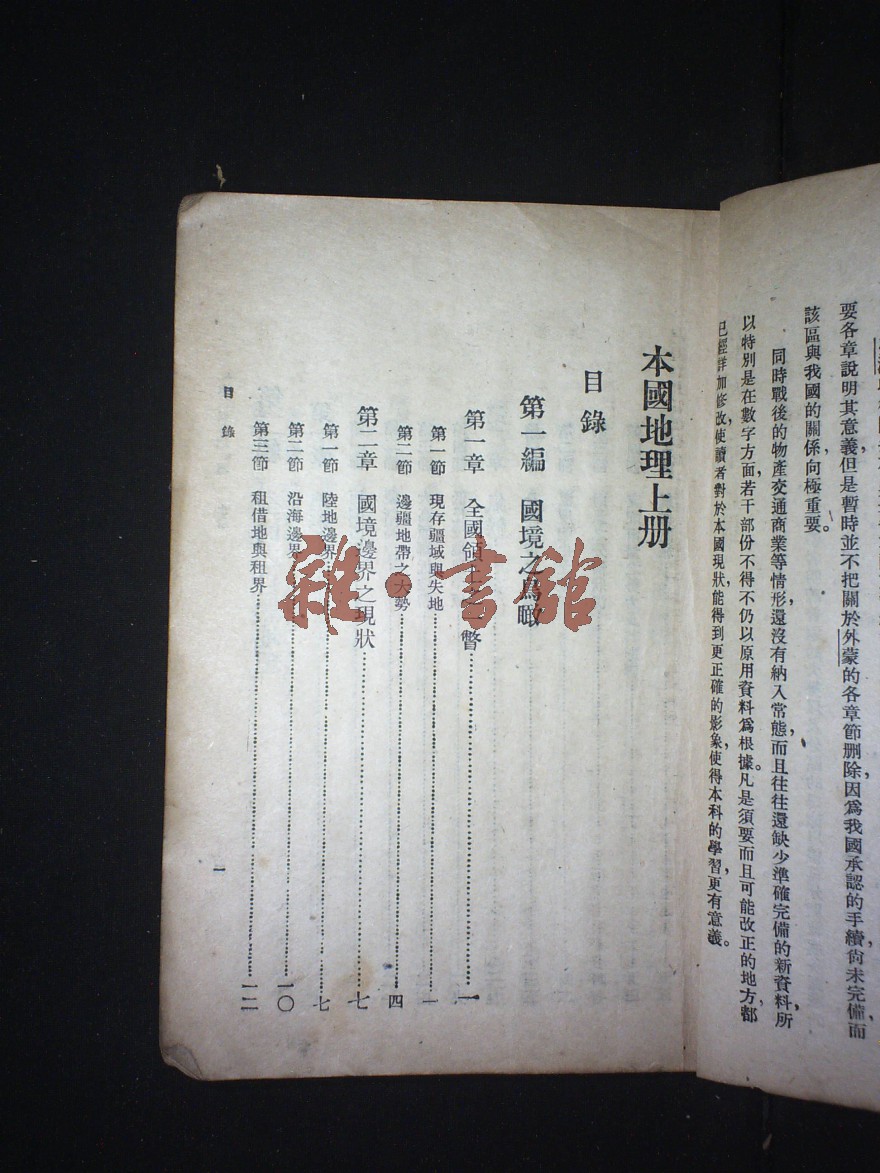 要各章說明其意義，但是暫時並不把關於外蒙的各章節刪除，因爲我國承認的手續尙未完備，而
該區與我國的關係，向極重要。
同時戰後的物產交通商業等情形，還沒有納入常態，而且往往還缺少準確完備的新資料，所
以特別是在數字方面，若干部份不得不仍以原用資料爲根據。凡是須要而且可能改正的地方，都
已經詳加修改，使讀者對於本國現狀，能得到更正確的影象，使得本科的學習，更有意義。
本國地理上册
目錄
第一編 國境之鳥瞰
第一章 全國領土之一瞥……一
第一節 現存疆域與失地……一
第二節 邊疆地帶之大勢……四
第二章 國境邊界之現狀……七
第一節 陸地邊界……七
第二節 沿海邊界……一〇
第三節 租借地與租界……一二
目錄
一
雜·書館